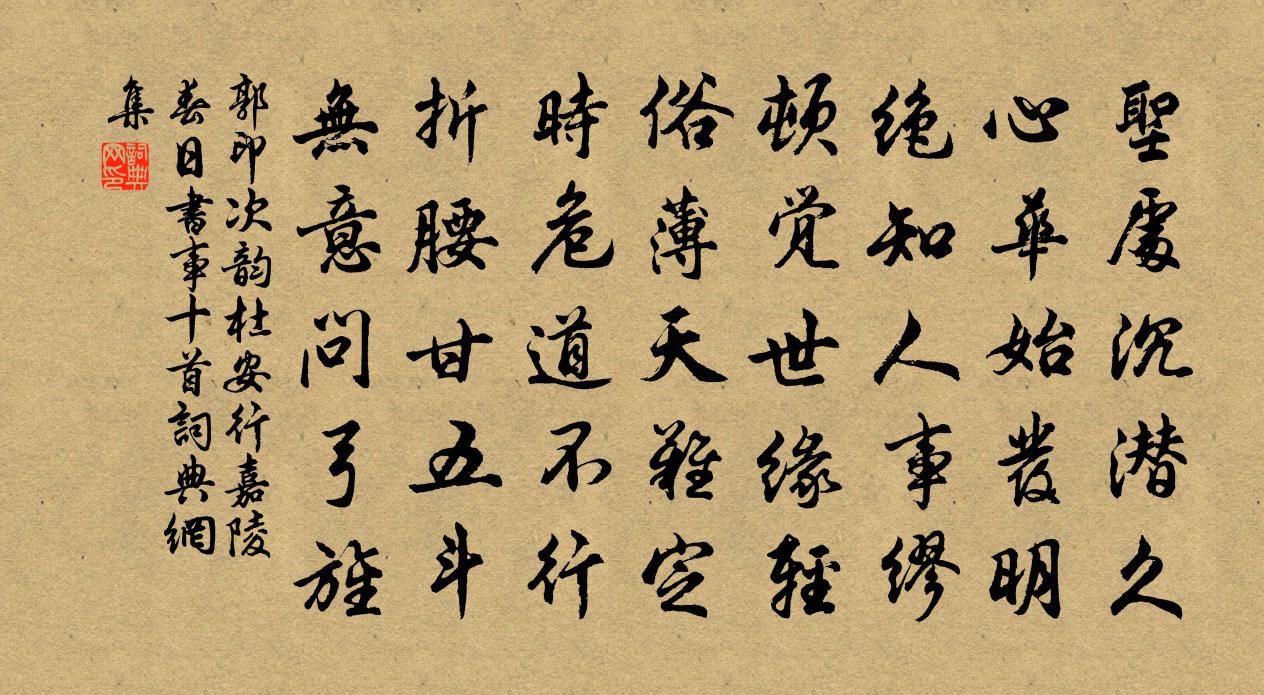 聖處沉潜久
心華始發明
绝知人事繆
頓覺世緣輕
俗薄天難定
時危道不行
折腰甘五斗
無意問弓旌
郭印次韵杜安行嘉陵
春日書事十首詞典網
集
詞典網印